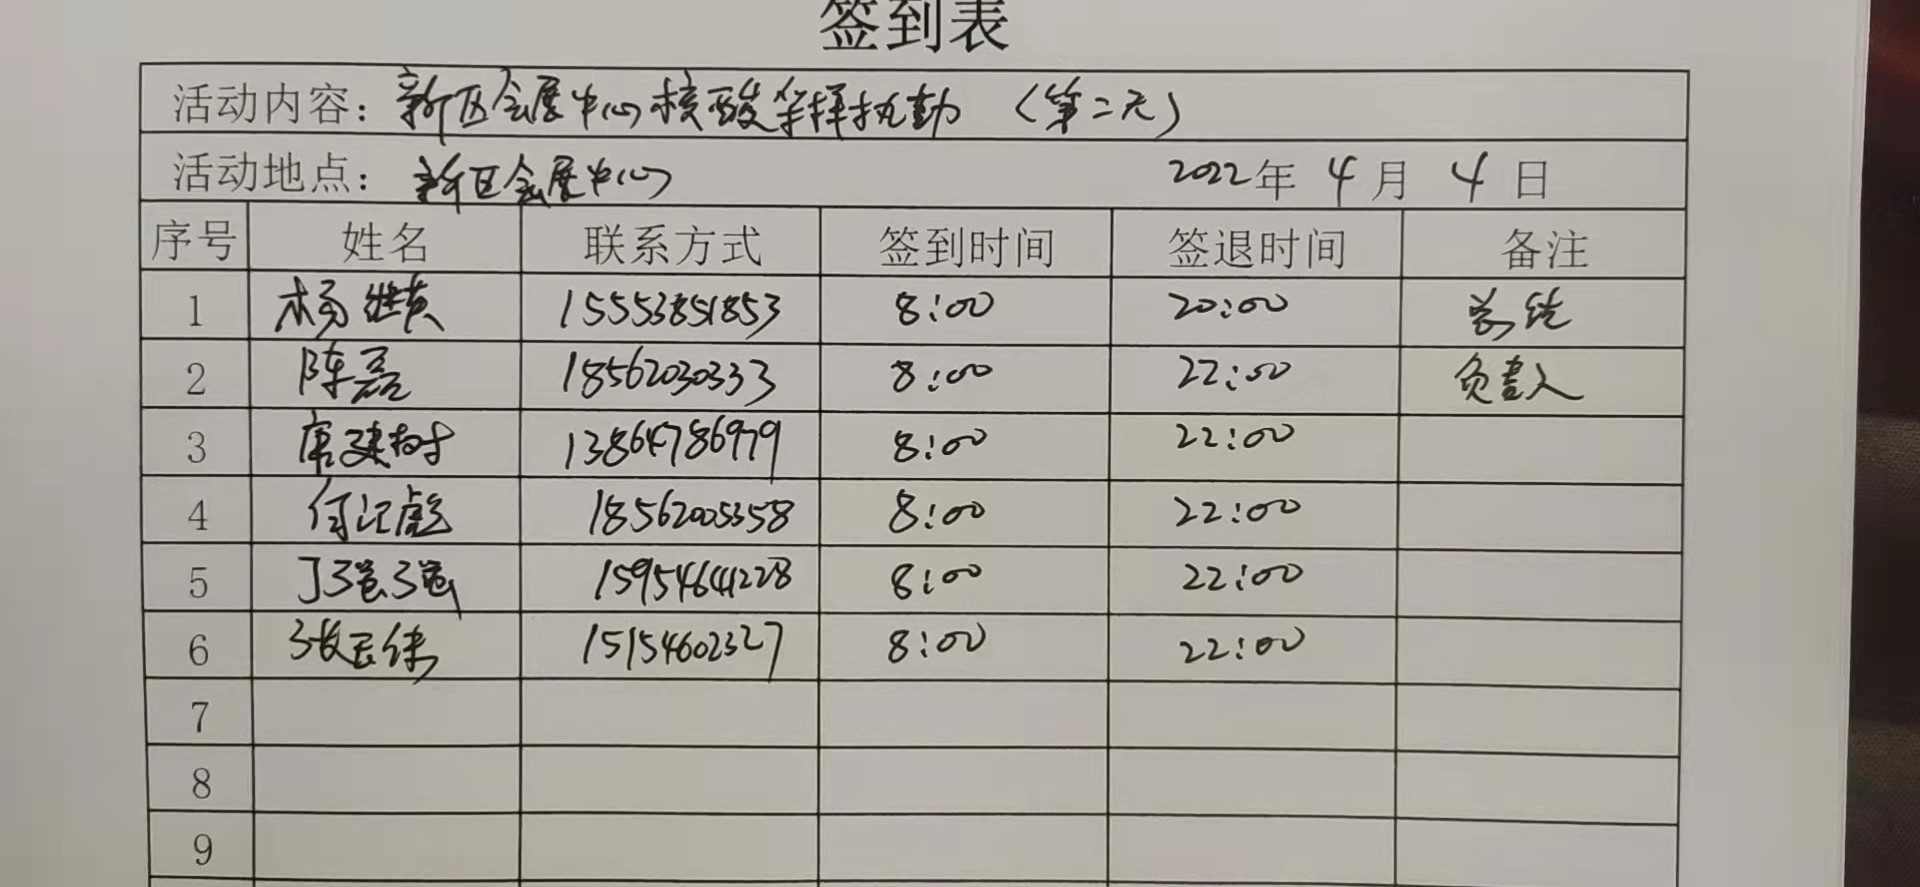 签到表
活动内容：新区会展中心核酸采样执勤（第二天）
活动地点：新区会展中心 2022年 4月 4日
序号 姓名 联系方式 签到时间 签退时间 备注
1 杨 15553851853 8:00 20:00 总统
2 陈磊 18562030333 8:00 22:00 负责人
3 唐建树 13864786979 8:00 22:00
4 付江彪 18562005358 8:00 22:00
5 丁强强 15954641228 8:00 22:00
6 张 15154602327 8:00 22:00
7
8
9